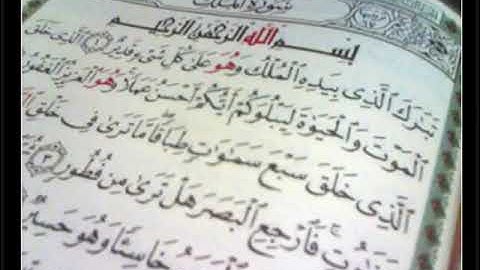 سورة الملك
بسم الله الرحمن الرحيم
تَبَٰرَكَ الَّذِى بِيَدِهِ الْمُلْكُ وَهُوَ عَلَىٰ كُلِّ شَىْءٍ قَدِيرٌ ١ الَّذِى خَلَقَ
الْمَوْتَ وَالْحَيَوٰةَ لِيَبْلُوَكُمْ أَيُّكُمْ أَحْسَنُ عَمَلًا وَهُوَ الْعَزِيزُ الْغَفُورُ
الَّذِى خَلَقَ سَبْعَ سَمَٰوَٰتٍ طِبَاقًا مَّا تَرَىٰ فِى خَلْقِ
فَارْجِعِ الْبَصَرَ هَلْ تَرَىٰ مِن فُطُورٍ ٣
خَاسِئًا وَهُوَ حَسِيرٌ